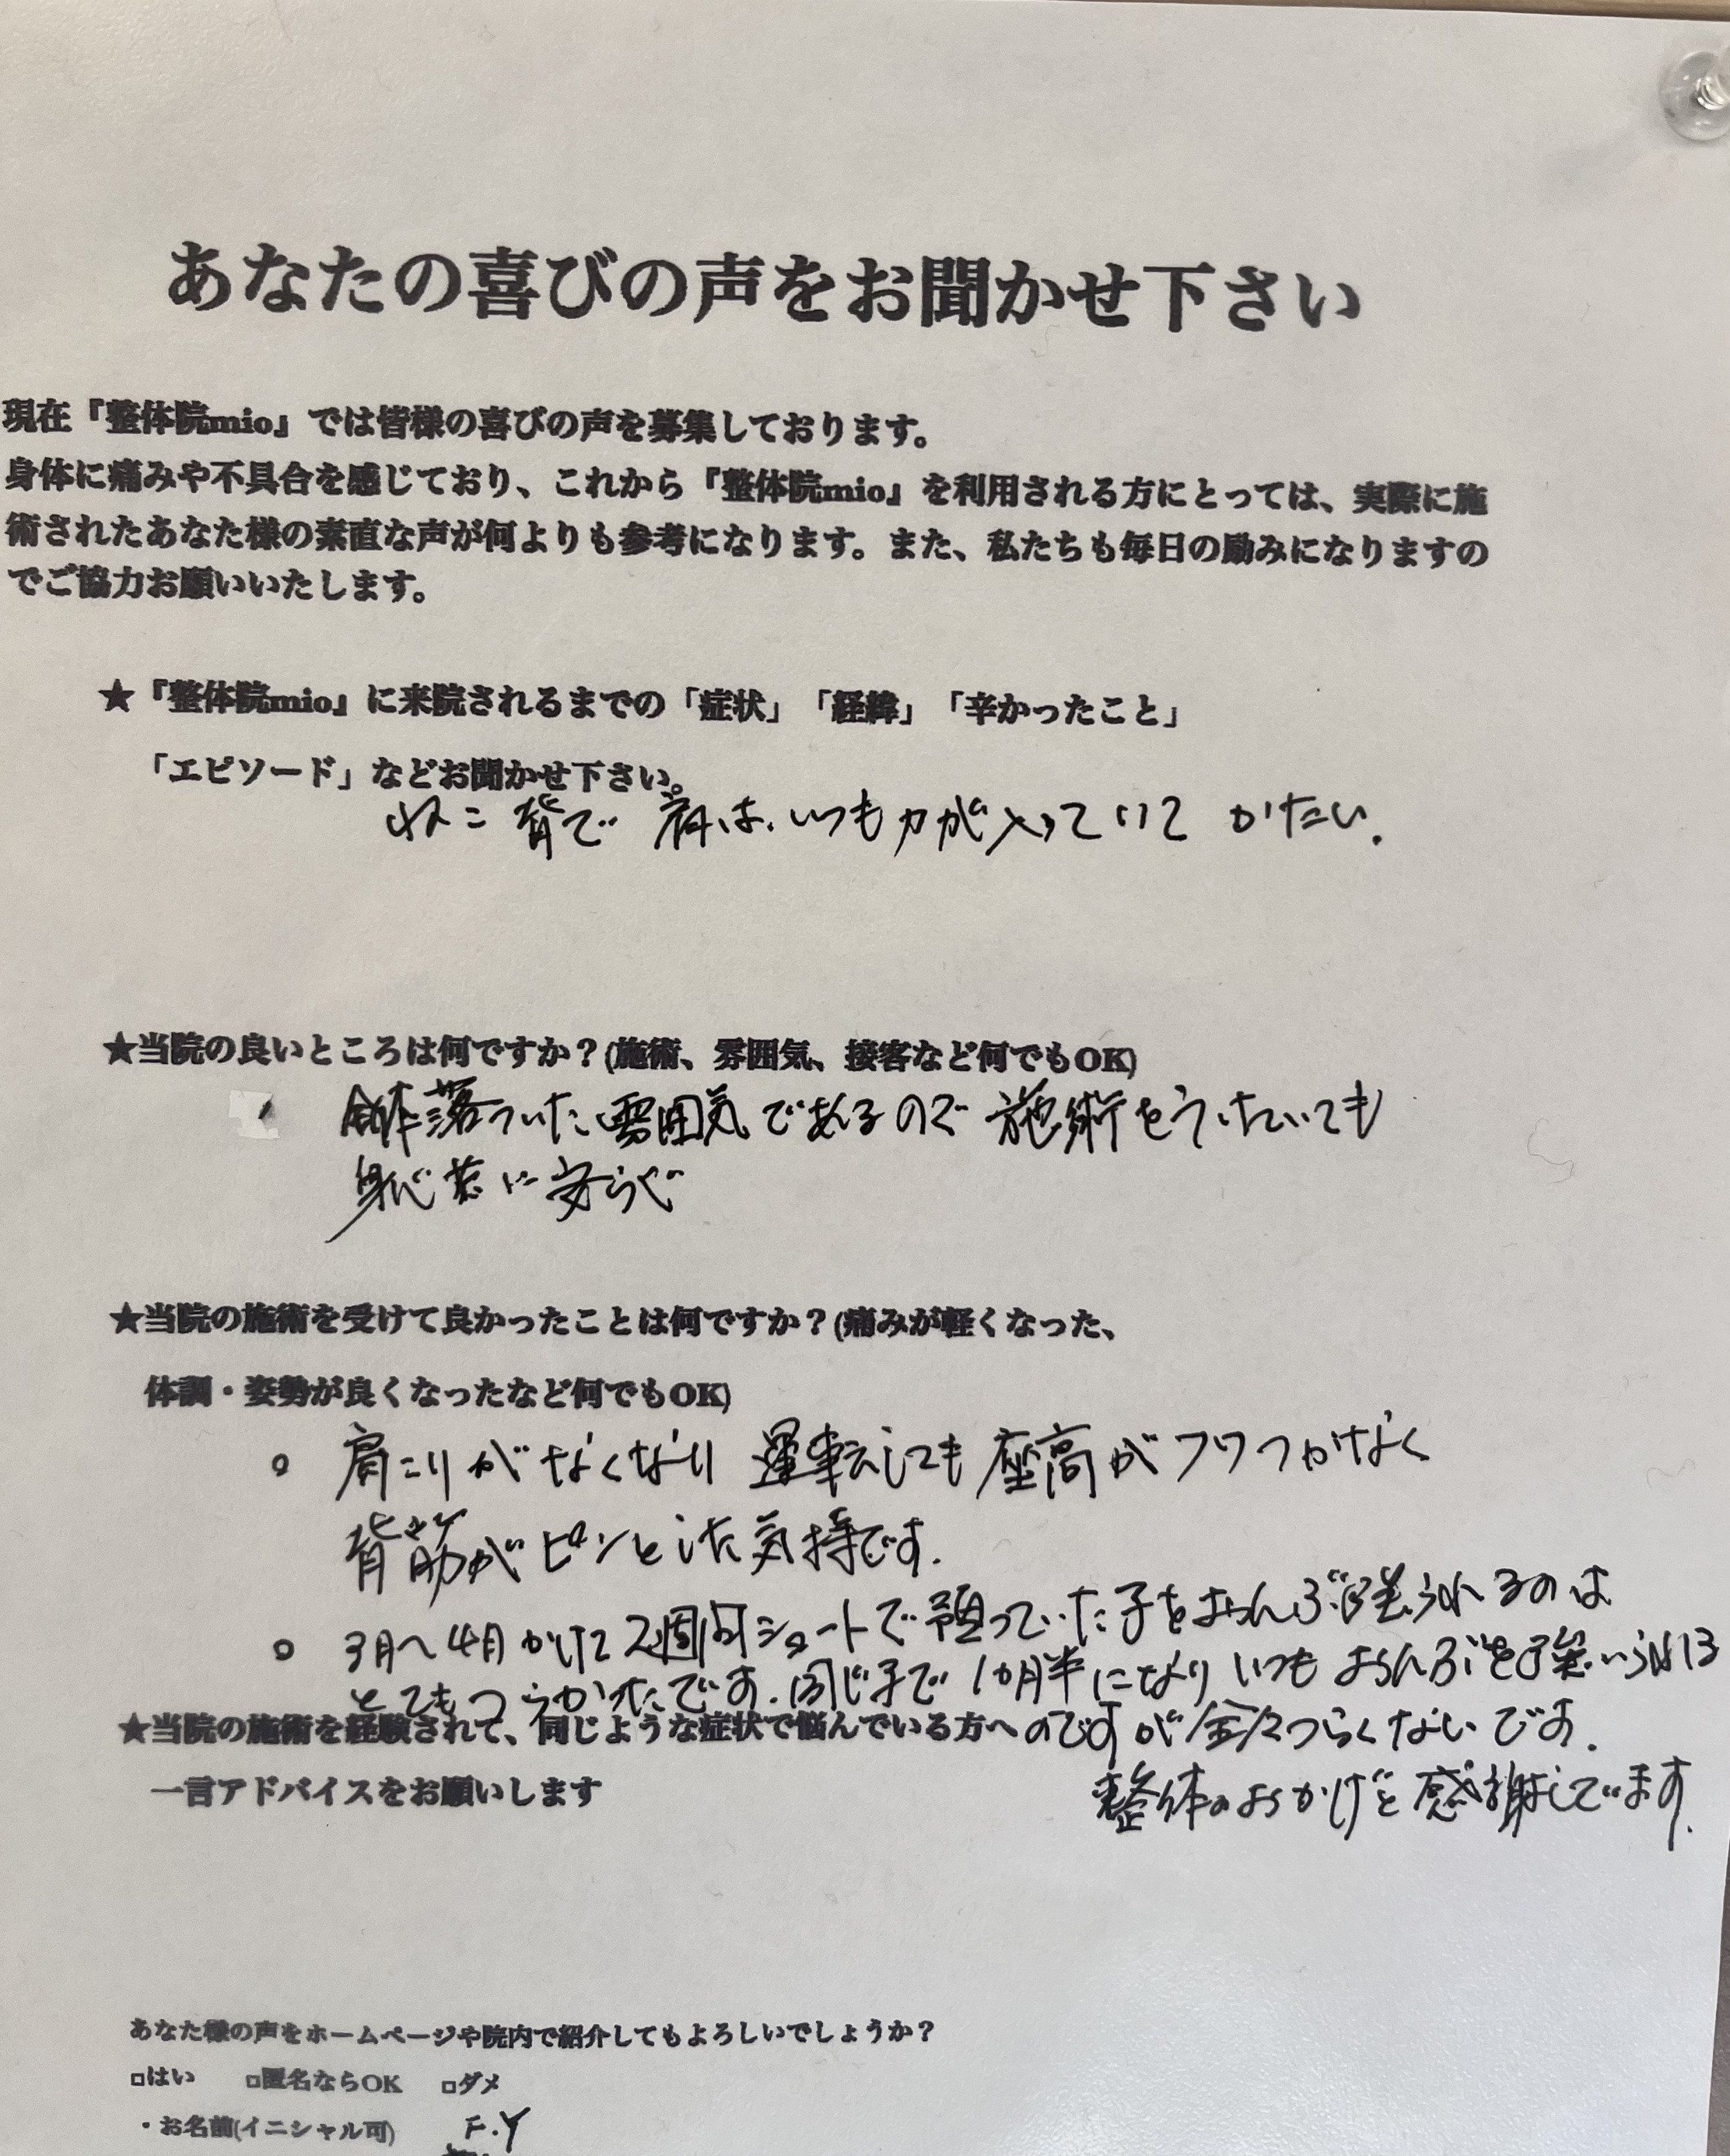 あなたの喜びの声をお聞かせ下さい
現在『整体院mio』では皆様の喜びの声を募集しております。
身体に痛みや不具合を感じており、これから『整体院mio』を利用される方にとっては、実際に施
術されたあなた様の素直な声が何よりも参考になります。また、私たちも毎日の励みになりますの
でご協力お願いいたします。
★『整体院mio』に来院されるまでの「症状」「経緯」「辛かったこと」
「エピソード」などお聞かせ下さい。
ねこ背で 肩は、いつも力が入っていて かたい.
★当院の良いところは何ですか？(施術、雰囲気、接客など何でもOK)
全体落ついた雰囲気であるので 施術をうけていても
身心共に安らぐ
★当院の施術を受けて良かったことは何ですか？(痛みが軽くなった、
体調・姿勢が良くなったなど何でもOK)
○ 肩こりがなくなり 運転しても座高がフワつかなく
背筋がピンとした気持です.
○ 3月〜4月かけて2週間ショートで預っていた子をおんぶ強られるのは
とてもつらかったです.同じ子で1ヶ月半になりいつもおんぶを強いられる
★当院の施術を経験されて、同じような症状で悩んでいる方へ のですが全々つらくないです.
一言アドバイスをお願いします
整体のおかげと感謝しています.
あなた様の声をホームページや院内で紹介してもよろしいでしょうか？
□はい □匿名ならOK □ダメ
・お名前(イニシャル可) F.Y